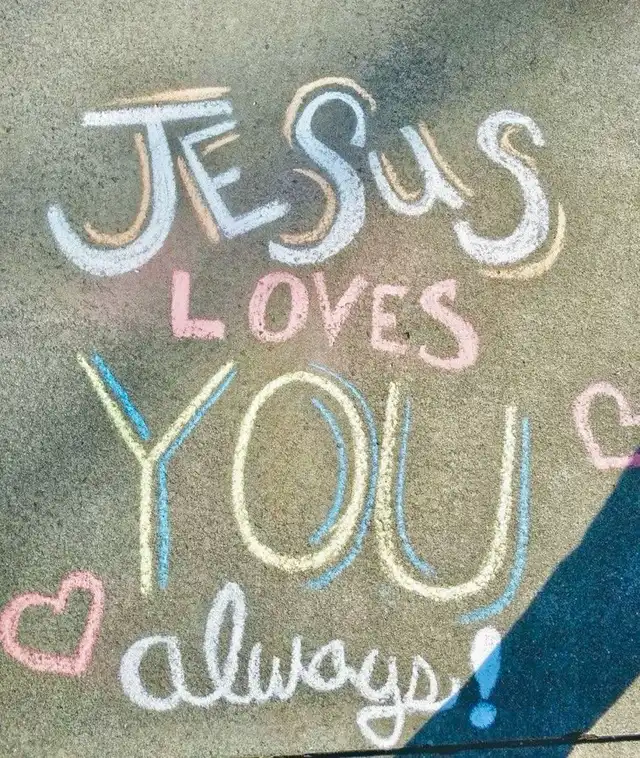 JESUS
LOVES
YOU
always!